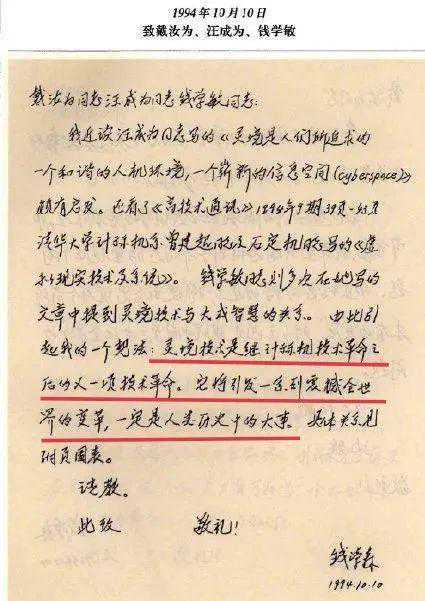 1994年10月10日
致戴汝为、汪成为、钱学敏
戴汝为同志汪成为同志钱学敏同志：
我近读汪成为同志写的《灵境是人们所追求的
一个和谐的人机环境，一个崭新的信息空间(cyberspace)》
颇有启发。也看了《高技术通讯》1994年9期39页-43页
清华大学计算机系曾建超 及石定机 写的《虚
拟现实技术及系统》。 钱学敏 多次在她写的
文章中提到灵境技术与大成智慧的关系。由此引
起我的一个想法：灵境技术是继计算机技术革命之
后的又一项技术革命。它将引发一系列震撼全世
界的变革，一定是人类历史中的大事。 具体关系见
附页图表。
请教。
此致 敬礼！
钱学森
1994.10.10